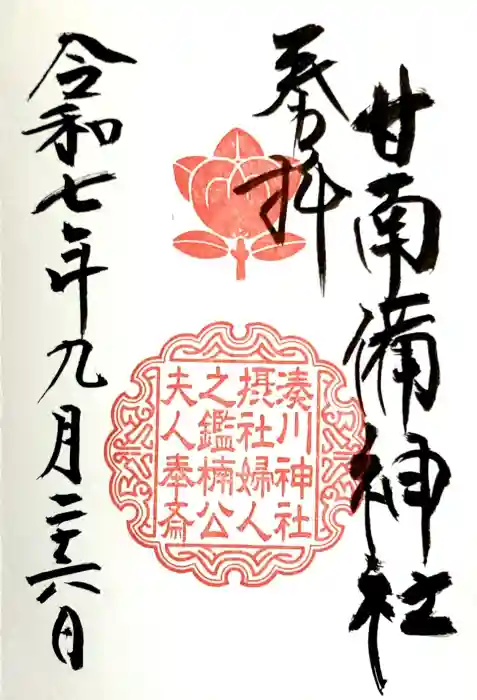 甘南備神社
奉拝
湊川神社
摂社婦人
之鑑楠公
夫人奉斎
令和七年九月二十六日